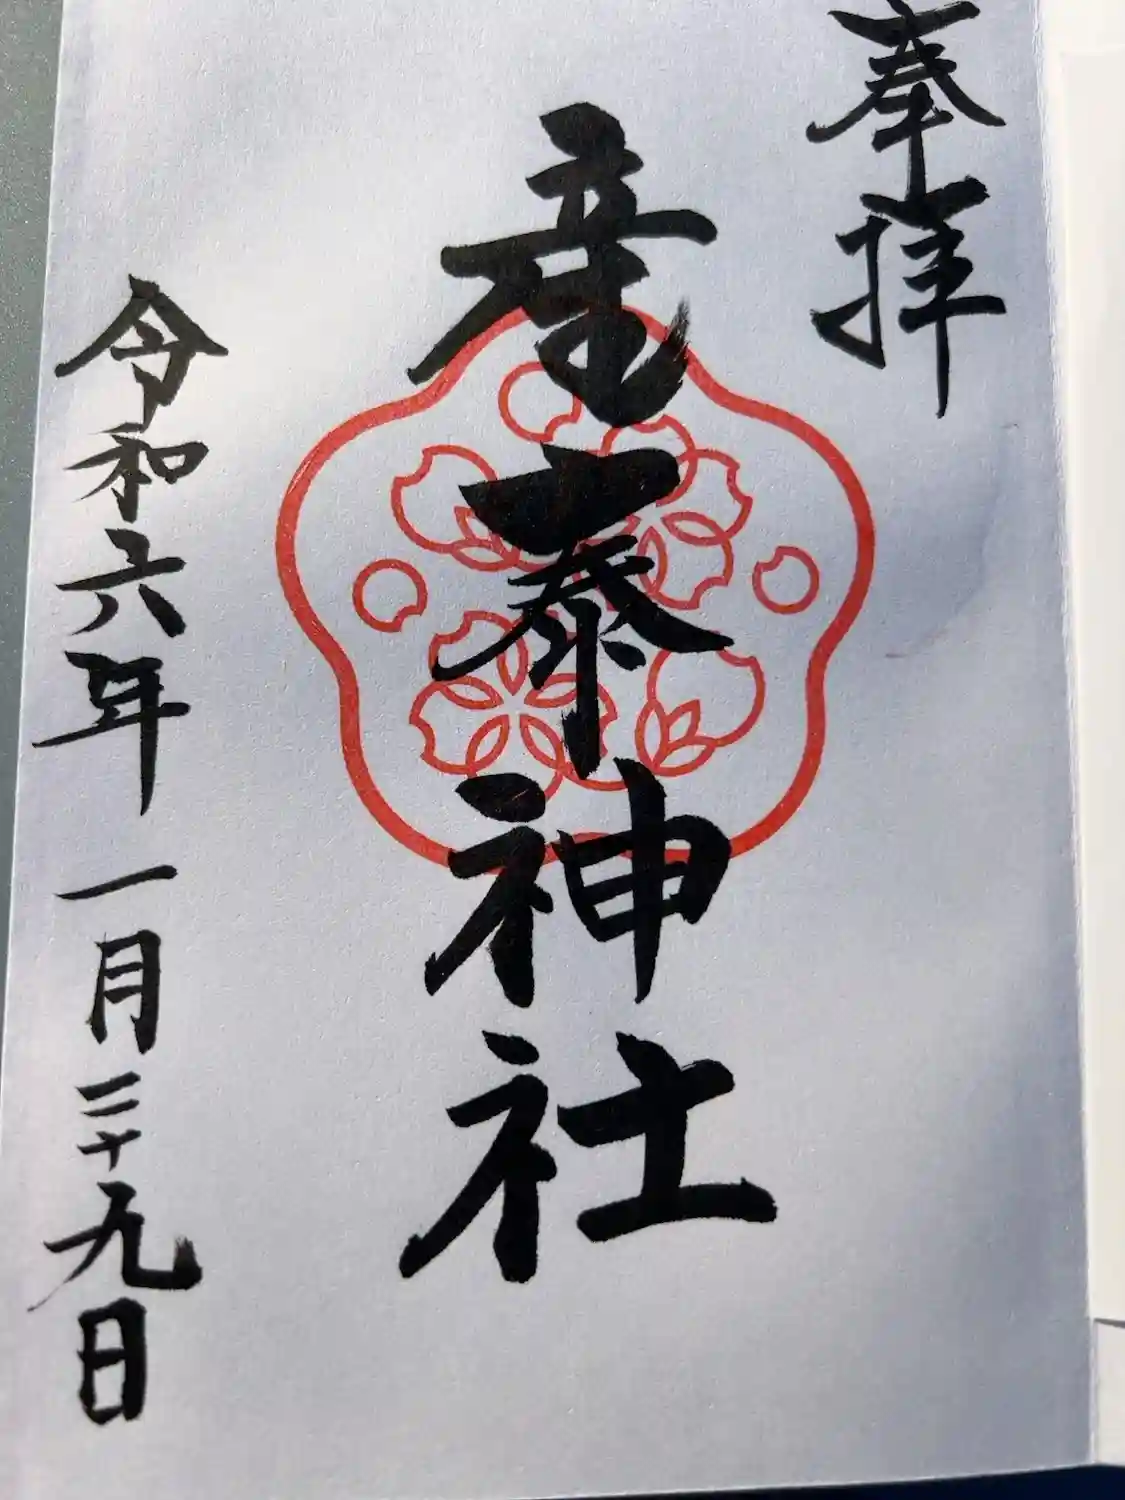 奉拝
産泰神社
令和六年一月二十九日